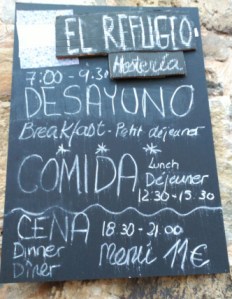 EL REFUGIO
Hostería
7:00 - 9.30
DESAYUNO
Breakfast - Petit déjeuner
COMIDA Lunch
Déjeuner
12:30 - 15.30
CENA 18:30 - 21.00
Dinner
Dîner
Menú 11€